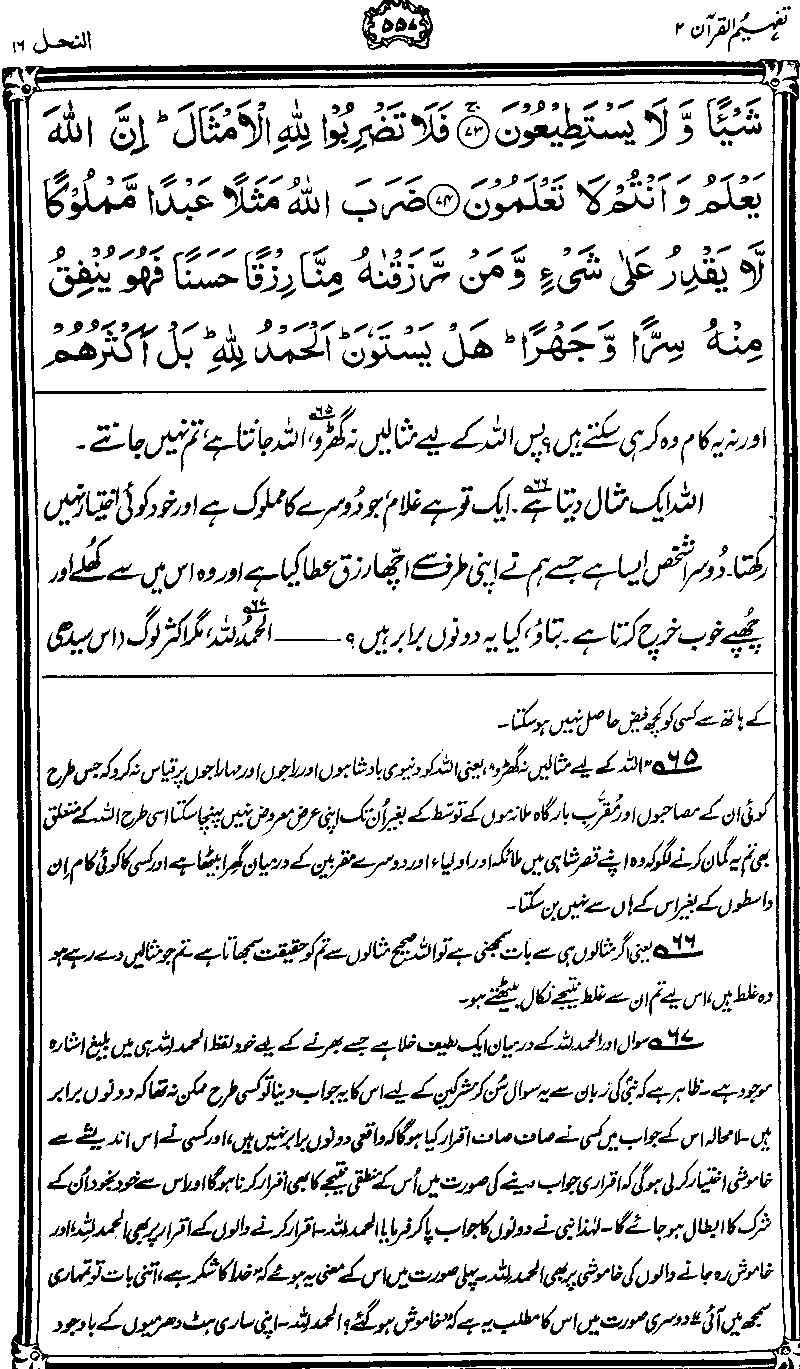 تفہیم القرآن ۲
۵۵۷
النحل ۱۶
شَيْـًٔا وَّ لَا يَسْتَطِيْعُوْنَ ۚ‏﴿۷۳﴾ فَلَا تَضْرِبُوْا لِلّٰهِ الْاَمْثَالَ ؕ اِنَّ اللّٰهَ
يَعْلَمُ وَ اَنْتُمْ لَا تَعْلَمُوْنَ ﴿۷۴﴾ ضَرَبَ اللّٰهُ مَثَلًا عَبْدًا مَّمْلُوْكًا
لَّا يَقْدِرُ عَلٰى شَىْءٍ وَّ مَنْ رَّزَقْنٰهُ مِنَّا رِزْقًا حَسَنًا فَهُوَ يُنْفِقُ
مِنْهُ سِرًّا وَّ جَهْرًا ؕ هَلْ يَسْتَوٗنَ ؕ اَلْحَمْدُ لِلّٰهِ ؕ بَلْ اَكْثَرُهُمْ
اور نہ یہ کام وہ کر ہی سکتے ہیں؟ پس اللہ کے لیے مثالیں نہ گھڑو،۶۵ اللہ جانتا ہے، تم نہیں جانتے۔
اللہ ایک مثال دیتا ہے۶۶۔ ایک تو ہے غلام، جو دُوسرے کا مملوک ہے اور خود کوئی اختیار نہیں
رکھتا۔ دُوسرا شخص ایسا ہے جسے ہم نے اپنی طرف سے اچھا رزق عطا کیا ہے اور وہ اس میں سے کھُلے اور
چھُپے خوب خرچ کرتا ہے۔ بتاؤ، کیا یہ دونوں برابر ہیں؟ ——— الحمدُ للہ،۶۷ مگر اکثر لوگ (اس سیدھی
کے ہاتھ سے کسی کو کچھ فیض حاصل نہیں ہو سکتا۔
۶۵ ”اللہ کے لیے مثالیں نہ گھڑو“، یعنی اللہ کو دنیوی بادشاہوں اور راجوں اور مہاراجوں پر قیاس نہ کرو کہ جس طرح
کوئی ان کے مصاحبوں اور مُقرَّب بارگاہ ملازموں کے توسّط کے بغیر اُن تک اپنی عرض معروض نہیں پہنچا سکتا اسی طرح اللہ کے متعلق
بھی تم یہ گمان کرنے لگو کہ وہ اپنے قصر شاہی میں ملائکہ اور اولیاء اور دوسرے مقربین کے درمیان گھِرا بیٹھا ہے اور کسی کا کوئی کام اِن
واسطوں کے بغیر اس کے ہاں سے نہیں بن سکتا۔
۶۶ یعنی اگر مثالوں ہی سے بات سمجھنی ہے تو اللہ صحیح مثالوں سے تم کو حقیقت سمجھاتا ہے تم جو مثالیں دے رہے ہو
وہ غلط ہیں، اس لیے تم ان سے غلط نتیجے نکال بیٹھتے ہو۔
۶۷ سوال اور الحمد للہ کے درمیان ایک لطیف خلا ہے جسے بھرنے کے لیے خود لفظ الحمد للہ ہی میں بلیغ اشارہ
موجود ہے۔ ظاہر ہے کہ نبیؐ کی زبان سے یہ سوال سُن کر مشرکین کے لیے اس کا یہ جواب دینا تو کسی طرح ممکن نہ تھا کہ دونوں برابر
ہیں۔ لا محالہ اس کے جواب میں کسی نے صاف صاف اقرار کیا ہوگا کہ واقعی دونوں برابر نہیں ہیں، اور کسی نے اس اندیشے سے
خاموشی اختیار کر لی ہوگی کہ اقراری جواب دینے کی صورت میں اُس کے منطقی نتیجے کا بھی اقرار کرنا ہوگا اور اس سے خود بخود اُن کے
شرک کا ابطال ہو جائے گا۔ لہٰذا نبی نے دونوں کا جواب پا کر فرمایا الحمد للہ۔ اقرار کرنے والوں کے اقرار پر بھی الحمد للہ، اور
خاموش رہ جانے والوں کی خاموشی پر بھی الحمد للہ۔ پہلی صورت میں اس کے معنی یہ ہوئے کہ ”خدا کا شکر ہے، اتنی بات تو تمہاری
سمجھ میں آئی“۔ دوسری صورت میں اس کا مطلب یہ ہے کہ ”خاموش ہو گئے؟ الحمد للہ۔ اپنی ساری ہٹ دھرمیوں کے باوجود